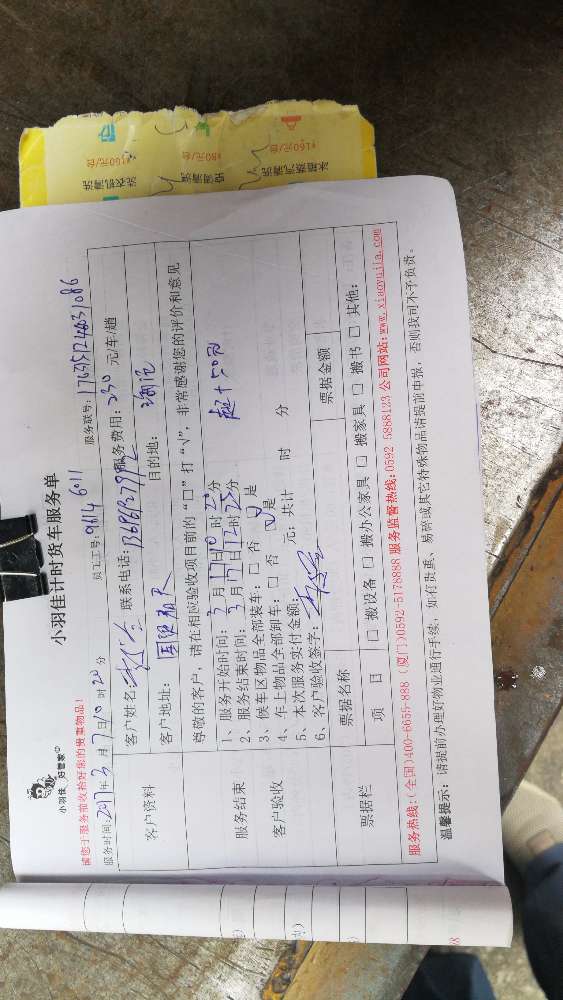 小羽佳 好管家
小羽佳计时货车服务单
请您于服务前收拾好您的贵重物品!
员工工号: 9614 6011
服务联号: 17635124631086
服务时间: 2017年3月7日10时20分
客户资料
客户姓名:
联系电话:
服务费用: 250 元/车/趟
客户地址:
目的地:
尊敬的客户,请在相应验收项目前的“口”打“√”,非常感谢您的评价和意见
服务结束
客户验收
1、服务开始时间: 3月17日10时25分
2、服务结束时间: 3月17日12时25分
3、候车区物品全部装车: □ 否 是
4、车上物品全部卸车: □ 否 是
5、本次服务实付金额: 元; 共计 时 分
6、客户验收签字:
票据栏
票据名称
票据金额
项 目
□ 搬设备 □ 搬办公家具 □ 搬家具 □ 搬书 □ 其他:
服务热线:(全国)400-6655-888 (厦门)0592-5178888 服务监督热线:0592 5888123 公司网站:www.xiaoyujia.com
温馨提示: 请提前办理好物业通行手续, 如有贵重、易碎或其它特殊物品请提前申报, 否则我司不予负责。
¥160元/台
¥80元/台
¥160元/台